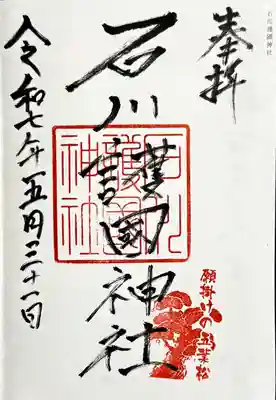 石川護國神社
奉拝
石川護國神社
石川護國神社
願掛けの五葉松
令和七年五月三十一日